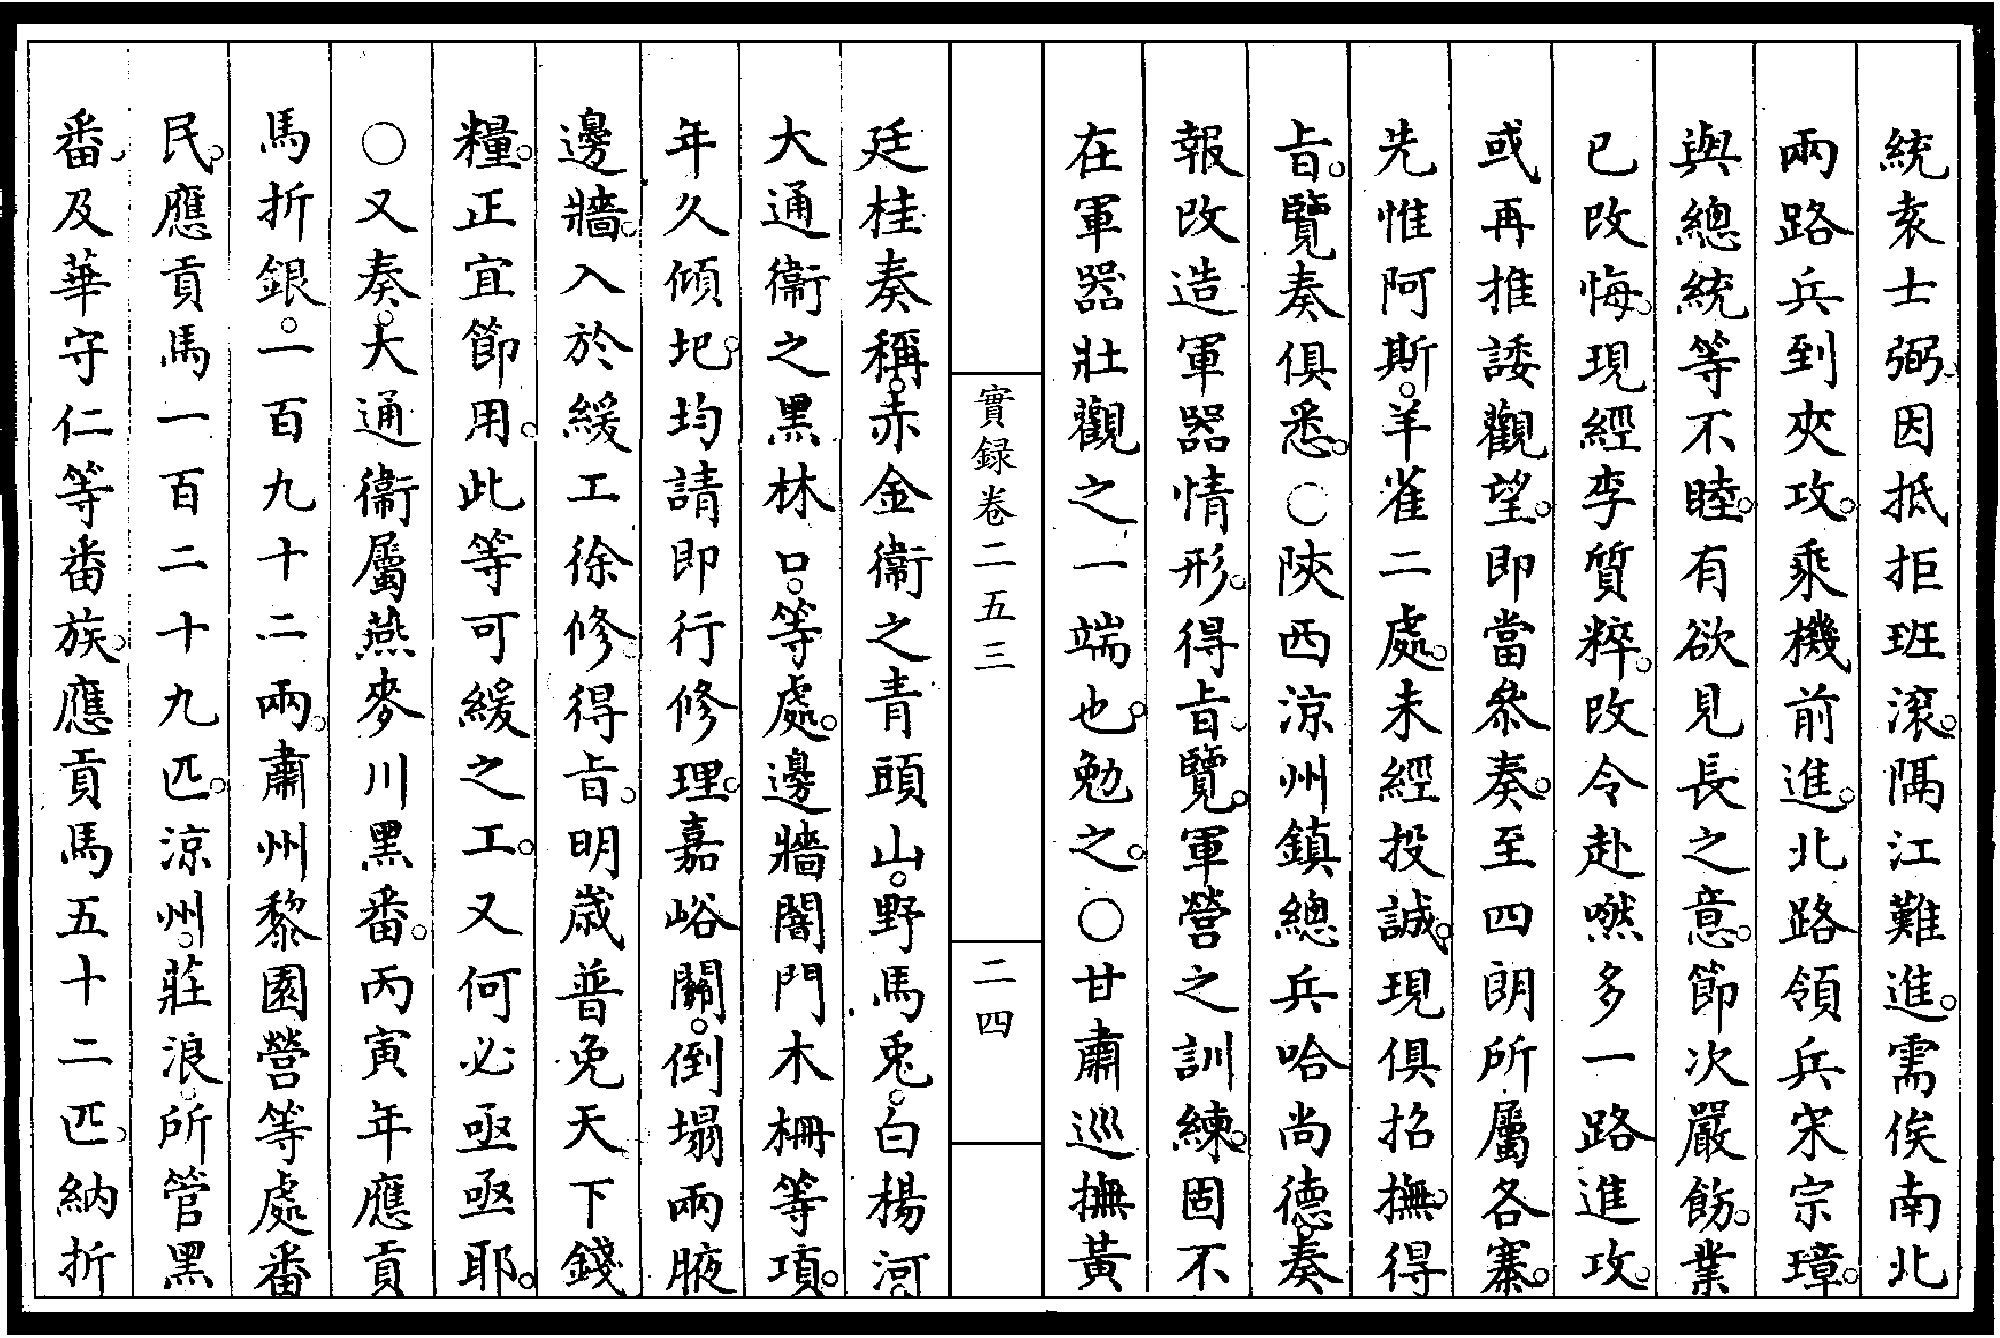 統袁士弼因抵拒班滾。隔江難進。需俟南北
兩路兵到夾攻。乘機前進。北路領兵宋宗璋。
與總統等不睦。有欲見長之意。節次嚴飭。業
已改悔。現經李質粹。改令赴嘫多一路進攻。
或再推諉觀望。卽當叅奏。至四朗所屬各寨。
先惟阿斯。羊雀二處。未經投誠。現俱招撫。得
旨。覽奏俱悉。○陝西涼州鎮總兵哈尚德。奏
報改造軍器情形。得旨。覽。軍營之訓練。固不
在軍器壯觀之一端也。勉之。○甘肅巡撫黃
實録卷二五三
二四
廷桂奏稱。赤金衞之青頭山。野馬兎。白楊河。
大通衞之黑林口。等處。邊牆闇門木柵等項。
年久傾圮。均請卽行修理。嘉峪關。倒塌兩腋
邊牆。入於緩工徐修。得旨。明歲普免天下錢
糧。正宜節用。此等可緩之工。又何必亟亟耶。
○又奏。大通衞屬燕麥川黑番。丙寅年應貢
馬折銀。一百九十二兩。肅州黎園營等處番
民。應貢馬一百二十九匹。涼州。莊浪。所管黑
番。及華守仁等番族。應貢馬五十二匹。納折